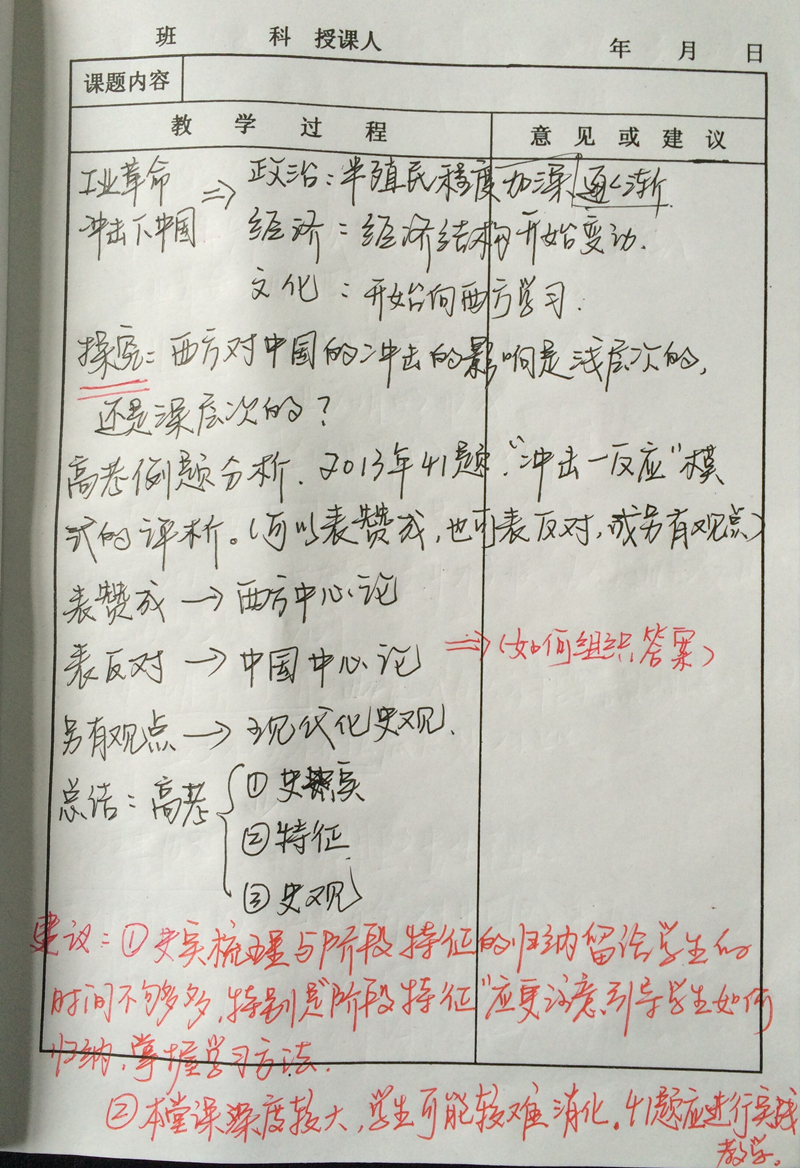 班 科 授课人 年 月 日
课题内容
教 学 过 程 意 见 或 建 议
工业革命 ⇒ 政治：半殖民程度加深 逐渐.
冲击下中国 经济：经济结构开始变动.
文化：开始向西方学习.
探究：西方对中国的冲击的影响是浅层次的,
还是深层次的？
高考例题分析. 2013年41题."冲击一反应"模
式的评析。(可以表赞成,也可表反对,或另有观点)
表赞成 → 西方中心论
表反对 → 中国中心论 ⇒(如何组织答案)
另有观点 → 现代化史观.
总结：高考 ①史实
②特征
③史观
建议：①史实梳理与阶段特征的归纳留给学生的
时间不够多,特别是"阶段特征"应更注意引导学生如何
归纳,掌握学习方法.
②本堂课深度较大,学生可能较难消化。41题应进行实战
教学。